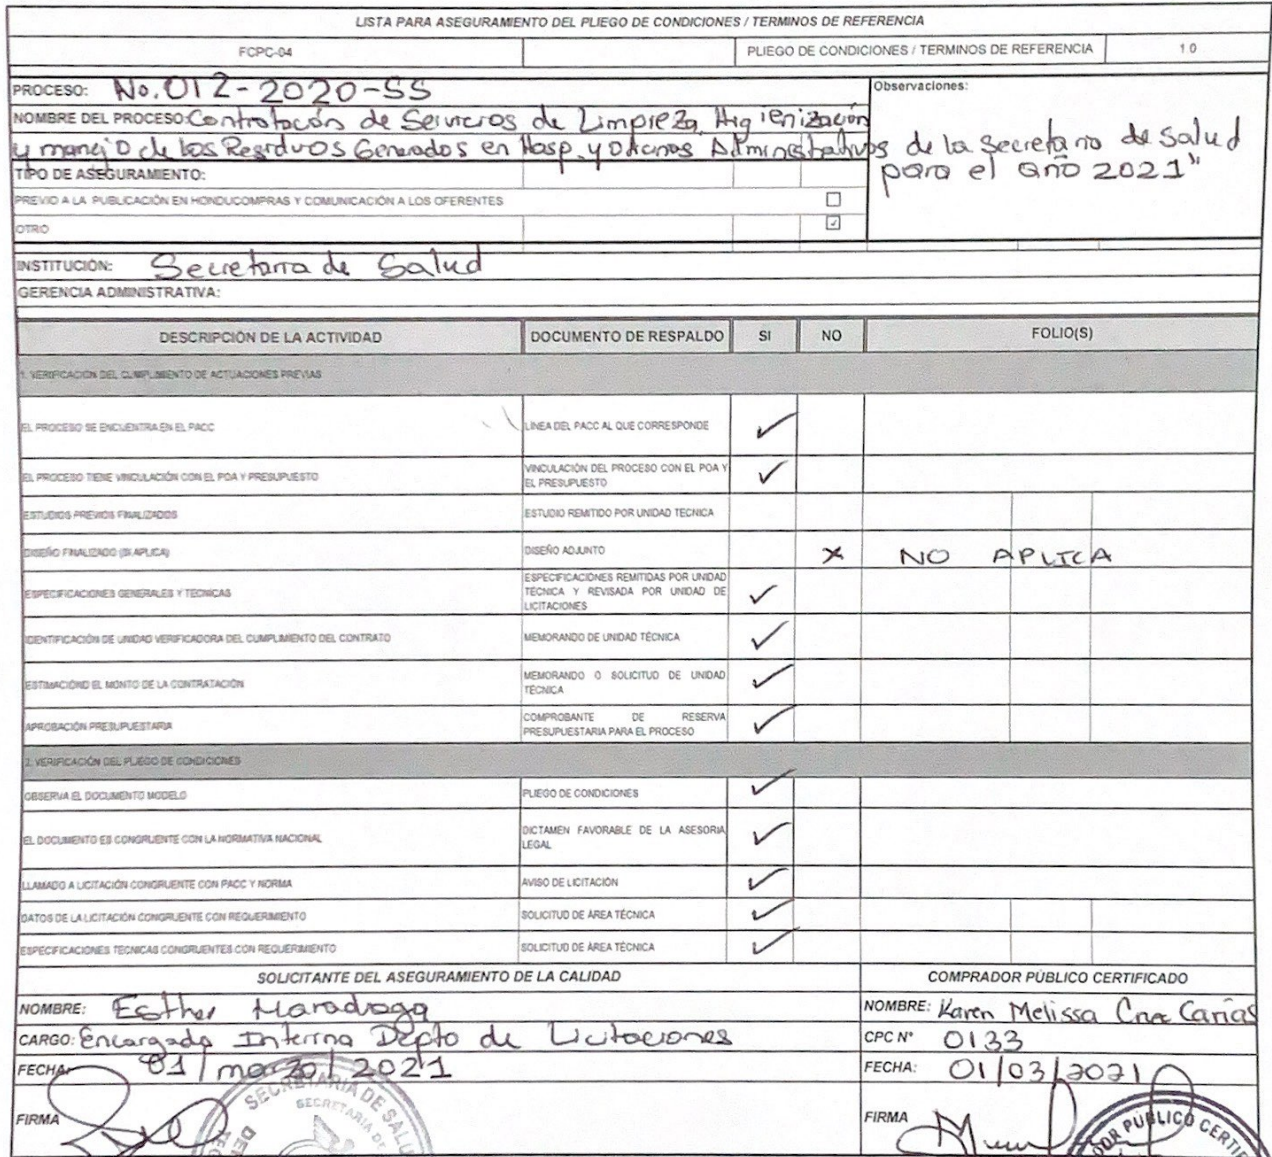 LISTA PARA ASEGURAMIENTO DEL PLIEGO DE CONDICIONES / TERMINOS DE REFERENCIA
FCPC-04 PLIEGO DE CONDICIONES / TERMINOS DE REFERENCIA 1.0
PROCESO: No.012-2020-SS
Observaciones:
NOMBRE DEL PROCESO: Contratación de Servicios de Limpieza, Higienización
y manejo de los Residuos Generados en Hosp. y Oficinas Administrativas de la Secretaria de Salud
para el año 2021"
TIPO DE ASEGURAMIENTO:
PREVIO A LA PUBLICACIÓN EN HONDUCOMPRAS Y COMUNICACIÓN A LOS OFERENTES
OTRO ✓
INSTITUCIÓN: Secretaria de Salud
GERENCIA ADMINISTRATIVA:
DESCRIPCIÓN DE LA ACTIVIDAD DOCUMENTO DE RESPALDO SI NO FOLIO(S)
1. VERIFICACION DEL CUMPLIMIENTO DE ACTUACIONES PREVIAS
EL PROCESO SE ENCUENTRA EN EL PACC LINEA DEL PACC AL QUE CORRESPONDE ✓
EL PROCESO TIENE VINCULACIÓN CON EL POA Y PRESUPUESTO VINCULACIÓN DEL PROCESO CON EL POA Y EL PRESUPUESTO ✓
ESTUDIOS PREVIOS FINALIZADOS ESTUDIO REMITIDO POR UNIDAD TECNICA
DISEÑO FINALIZADO (SI APLICA) DISEÑO ADJUNTO x NO APLICA
ESPECIFICACIONES GENERALES Y TECNICAS ESPECIFICACIONES REMITIDAS POR UNIDAD TECNICA Y REVISADA POR UNIDAD DE LICITACIONES ✓
IDENTIFICACIÓN DE UNIDAD VERIFICADORA DEL CUMPLIMIENTO DEL CONTRATO MEMORANDO DE UNIDAD TÉCNICA ✓
ESTIMACIÓND EL MONTO DE LA CONTRATACIÓN MEMORANDO O SOLICITUD DE UNIDAD TÉCNICA ✓
APROBACIÓN PRESUPUESTARIA COMPROBANTE DE RESERVA PRESUPUESTARIA PARA EL PROCESO ✓
2. VERIFICACIÓN DEL PLIEGO DE CONDICIONES
OBSERVA EL DOCUMENTO MODELO PLIEGO DE CONDICIONES ✓
EL DOCUMENTO ES CONGRUENTE CON LA NORMATIVA NACIONAL DICTAMEN FAVORABLE DE LA ASESORIA LEGAL ✓
LLAMADO A LICITACIÓN CONGRUENTE CON PACC Y NORMA AVISO DE LICITACIÓN ✓
DATOS DE LA LICITACIÓN CONGRUENTE CON REQUERIMIENTO SOLICITUD DE ÁREA TÉCNICA ✓
ESPECIFICACIONES TECNICAS CONGRUENTES CON REQUERIMIENTO SOLICITUD DE ÁREA TÉCNICA ✓
SOLICITANTE DEL ASEGURAMIENTO DE LA CALIDAD COMPRADOR PÚBLICO CERTIFICADO
NOMBRE: Esther Maradiaga NOMBRE: Karen Melissa Carias
CARGO: Encargada Interina Depto de Licitaciones CPC N° 0133
FECHA: 01/marzo/2021 FECHA: 01/03/2021
FIRMA FIRMA
SECRETARIA DE SALUD
SECRETARIA DE
PUBLICO